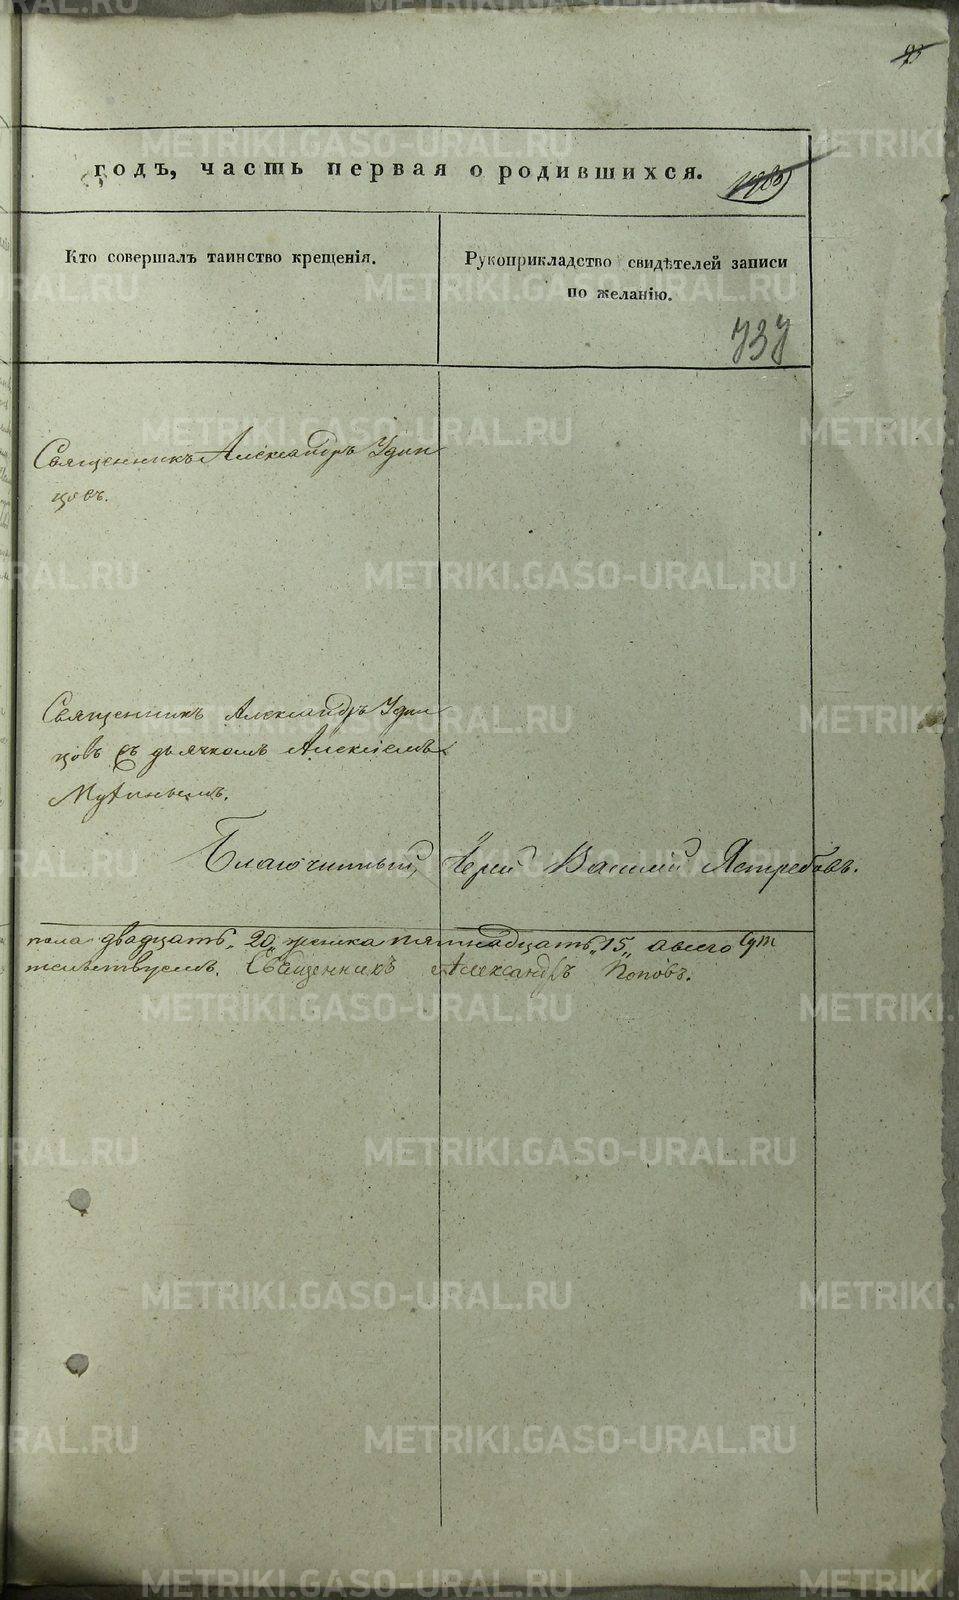 годъ, часть первая о родившихся.
Кто совершалъ таинство крещенія.
Рукоприкладство свидѣтелей записи
по желанію.
737
Священникъ Александръ Удин
цовъ.
Священникъ Александръ Удин
цовъ съ дьячкомъ Алексіемъ
Мутинымъ.
Благочинный, Іерей Василій Ястребовъ.
пола двадцать „20„ женска пятнадцать „15„ а всего
Священникъ Александръ Поповъ.
METRIKI.GASO-URAL.RU